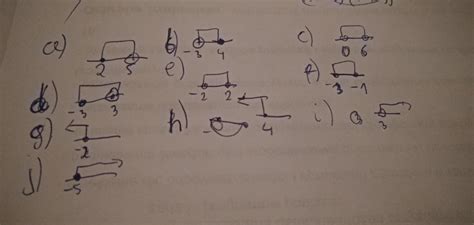 a) 2 5 b) -3 4 c) 0 6
d) -3 3 e) -2 2 f) -3 -1
g) -2 h) 4 i) 3
j) -5